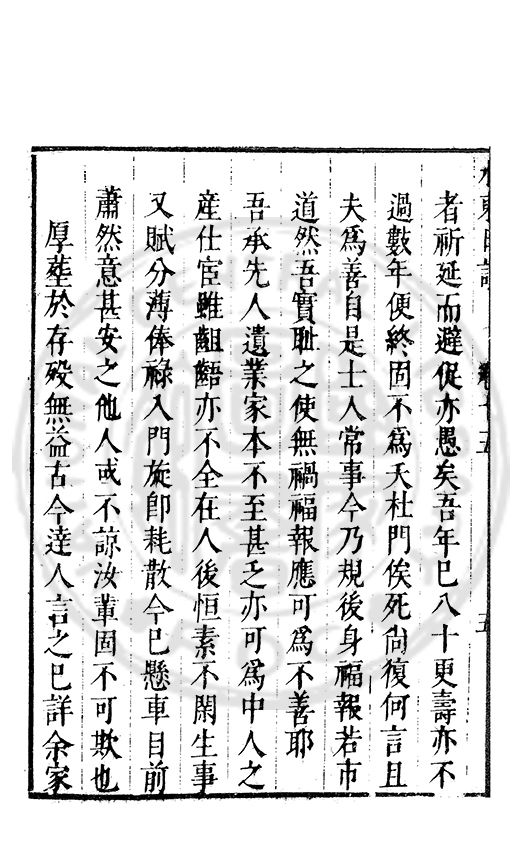 水東日記 卷十五 五
者祈延而避促亦愚矣吾年巳八十更壽亦不
過數年便終固不爲夭杜門俟死尙復何言且
夫爲善自是士人常事今乃規後身福報若市
道然吾實耻之使無禍福報應可爲不善耶
吾承先人遺業家本不至甚乏亦可爲中人之
産仕宦雖齟齬亦不全在人後恒素不閑生事
又賦分薄俸祿入門旋卽耗散今巳懸車目前
蕭然意甚安之他人或不諒汝軰固不可欺也
厚塟於存殁無益古今達人言之巳詳余家